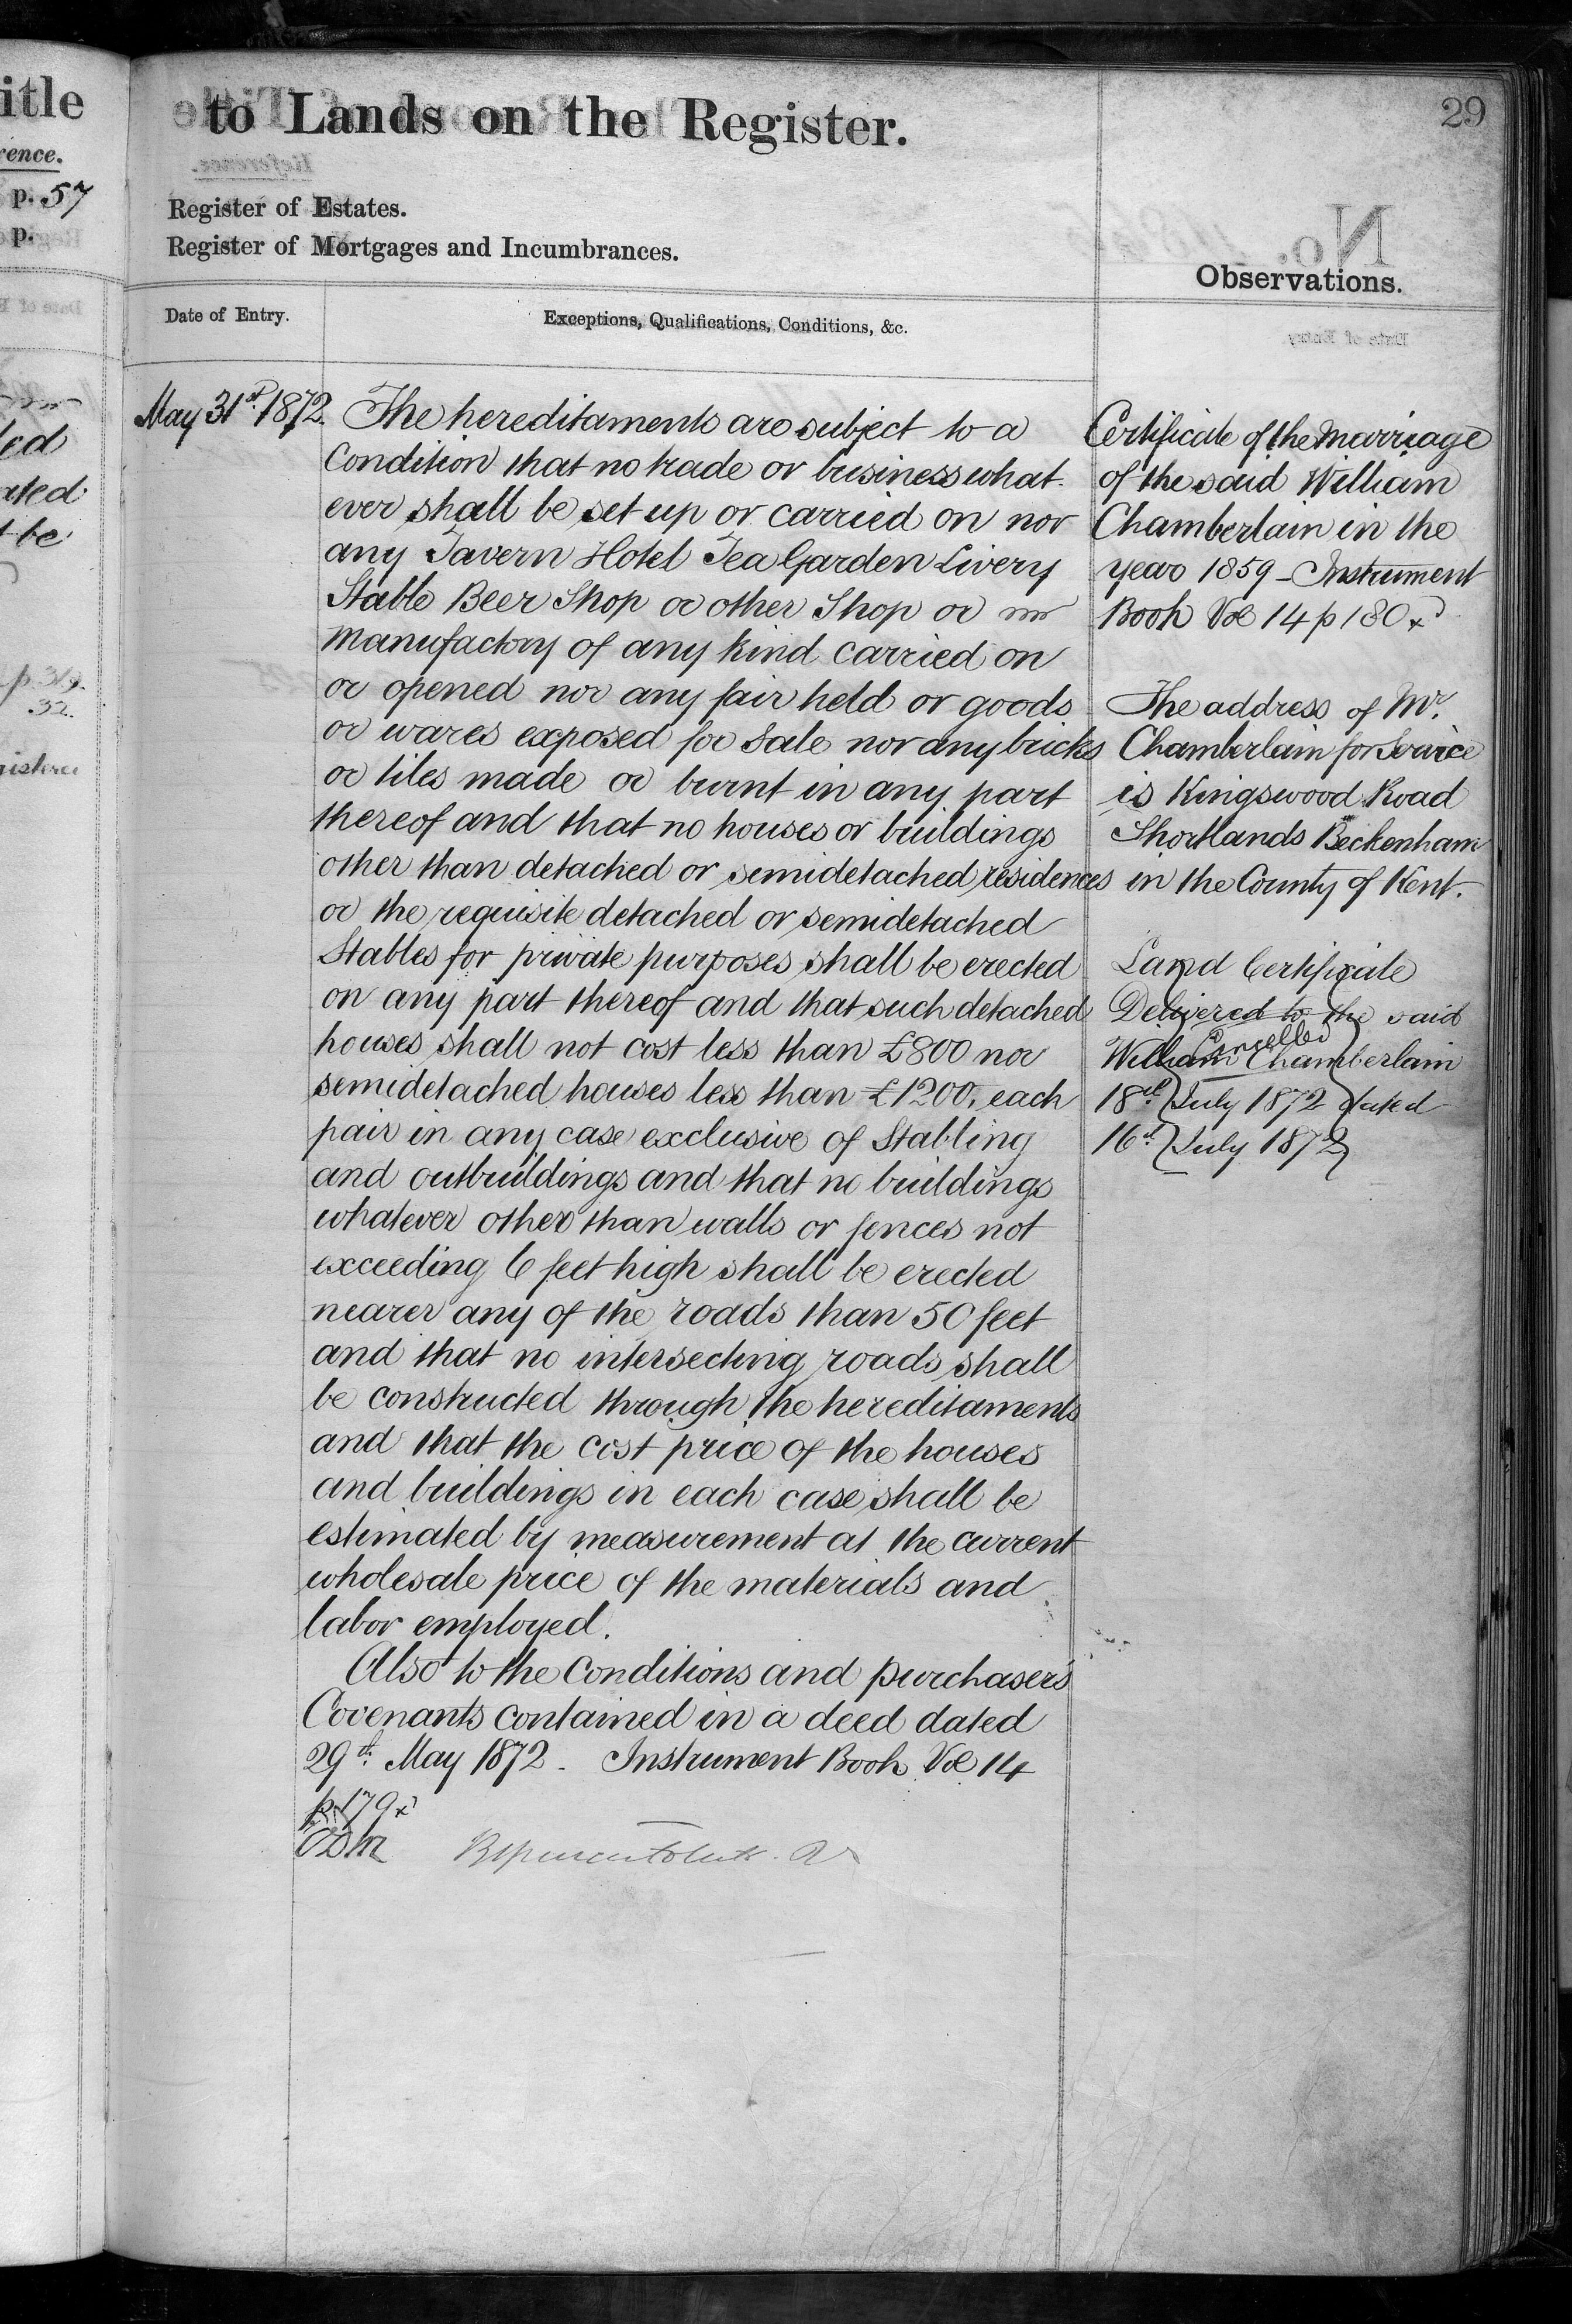 itle
rence.
p. 57
p.
ated
t be
p. 319.
32.
29
to Lands on the Register.
Register of Estates.
Register of Mortgages and Incumbrances.
Observations.
Date of Entry.
Exceptions, Qualifications, Conditions, &c.
May 31st 1872.
The hereditaments are subject to a
Condition that no trade or business what-
ever shall be set up or carried on nor
any Tavern Hotel Tea Garden Livery
Stable Beer Shop or other Shop or
manufactory of any kind carried on
or opened nor any fair held or goods
or wares exposed for sale nor any bricks
or tiles made or burnt in any part
thereof and that no houses or buildings
other than detached or semidetached residences
or the requisite detached or semidetached
Stables for private purposes shall be erected
on any part thereof and that such detached
houses shall not cost less than £800 nor
semidetached houses less than £1200, each
pair in any case exclusive of Stabling
and outbuildings and that no buildings
whatever other than walls or fences not
exceeding 6 feet high shall be erected
nearer any of the roads than 50 feet
and that no intersecting roads shall
be constructed through the hereditaments
and that the cost price of the houses
and buildings in each case shall be
estimated by measurement at the current
wholesale price of the materials and
labor employed.
Also to the Conditions and purchaser's
Covenants contained in a deed dated
29th May 1872 - Instrument Book Vol 14
p. 179 x
Certificate of the Marriage
of the said William
Chamberlain in the
year 1859 - Instrument
Book Vol 14 p 180 x
The address of Mr.
Chamberlain for Service
is Kingswood Road
Shortlands Beckenham
in the County of Kent.
Land Certificate
Delivered to the said
Cancelled
William Chamberlain
18th July 1872 dated
16th July 1872